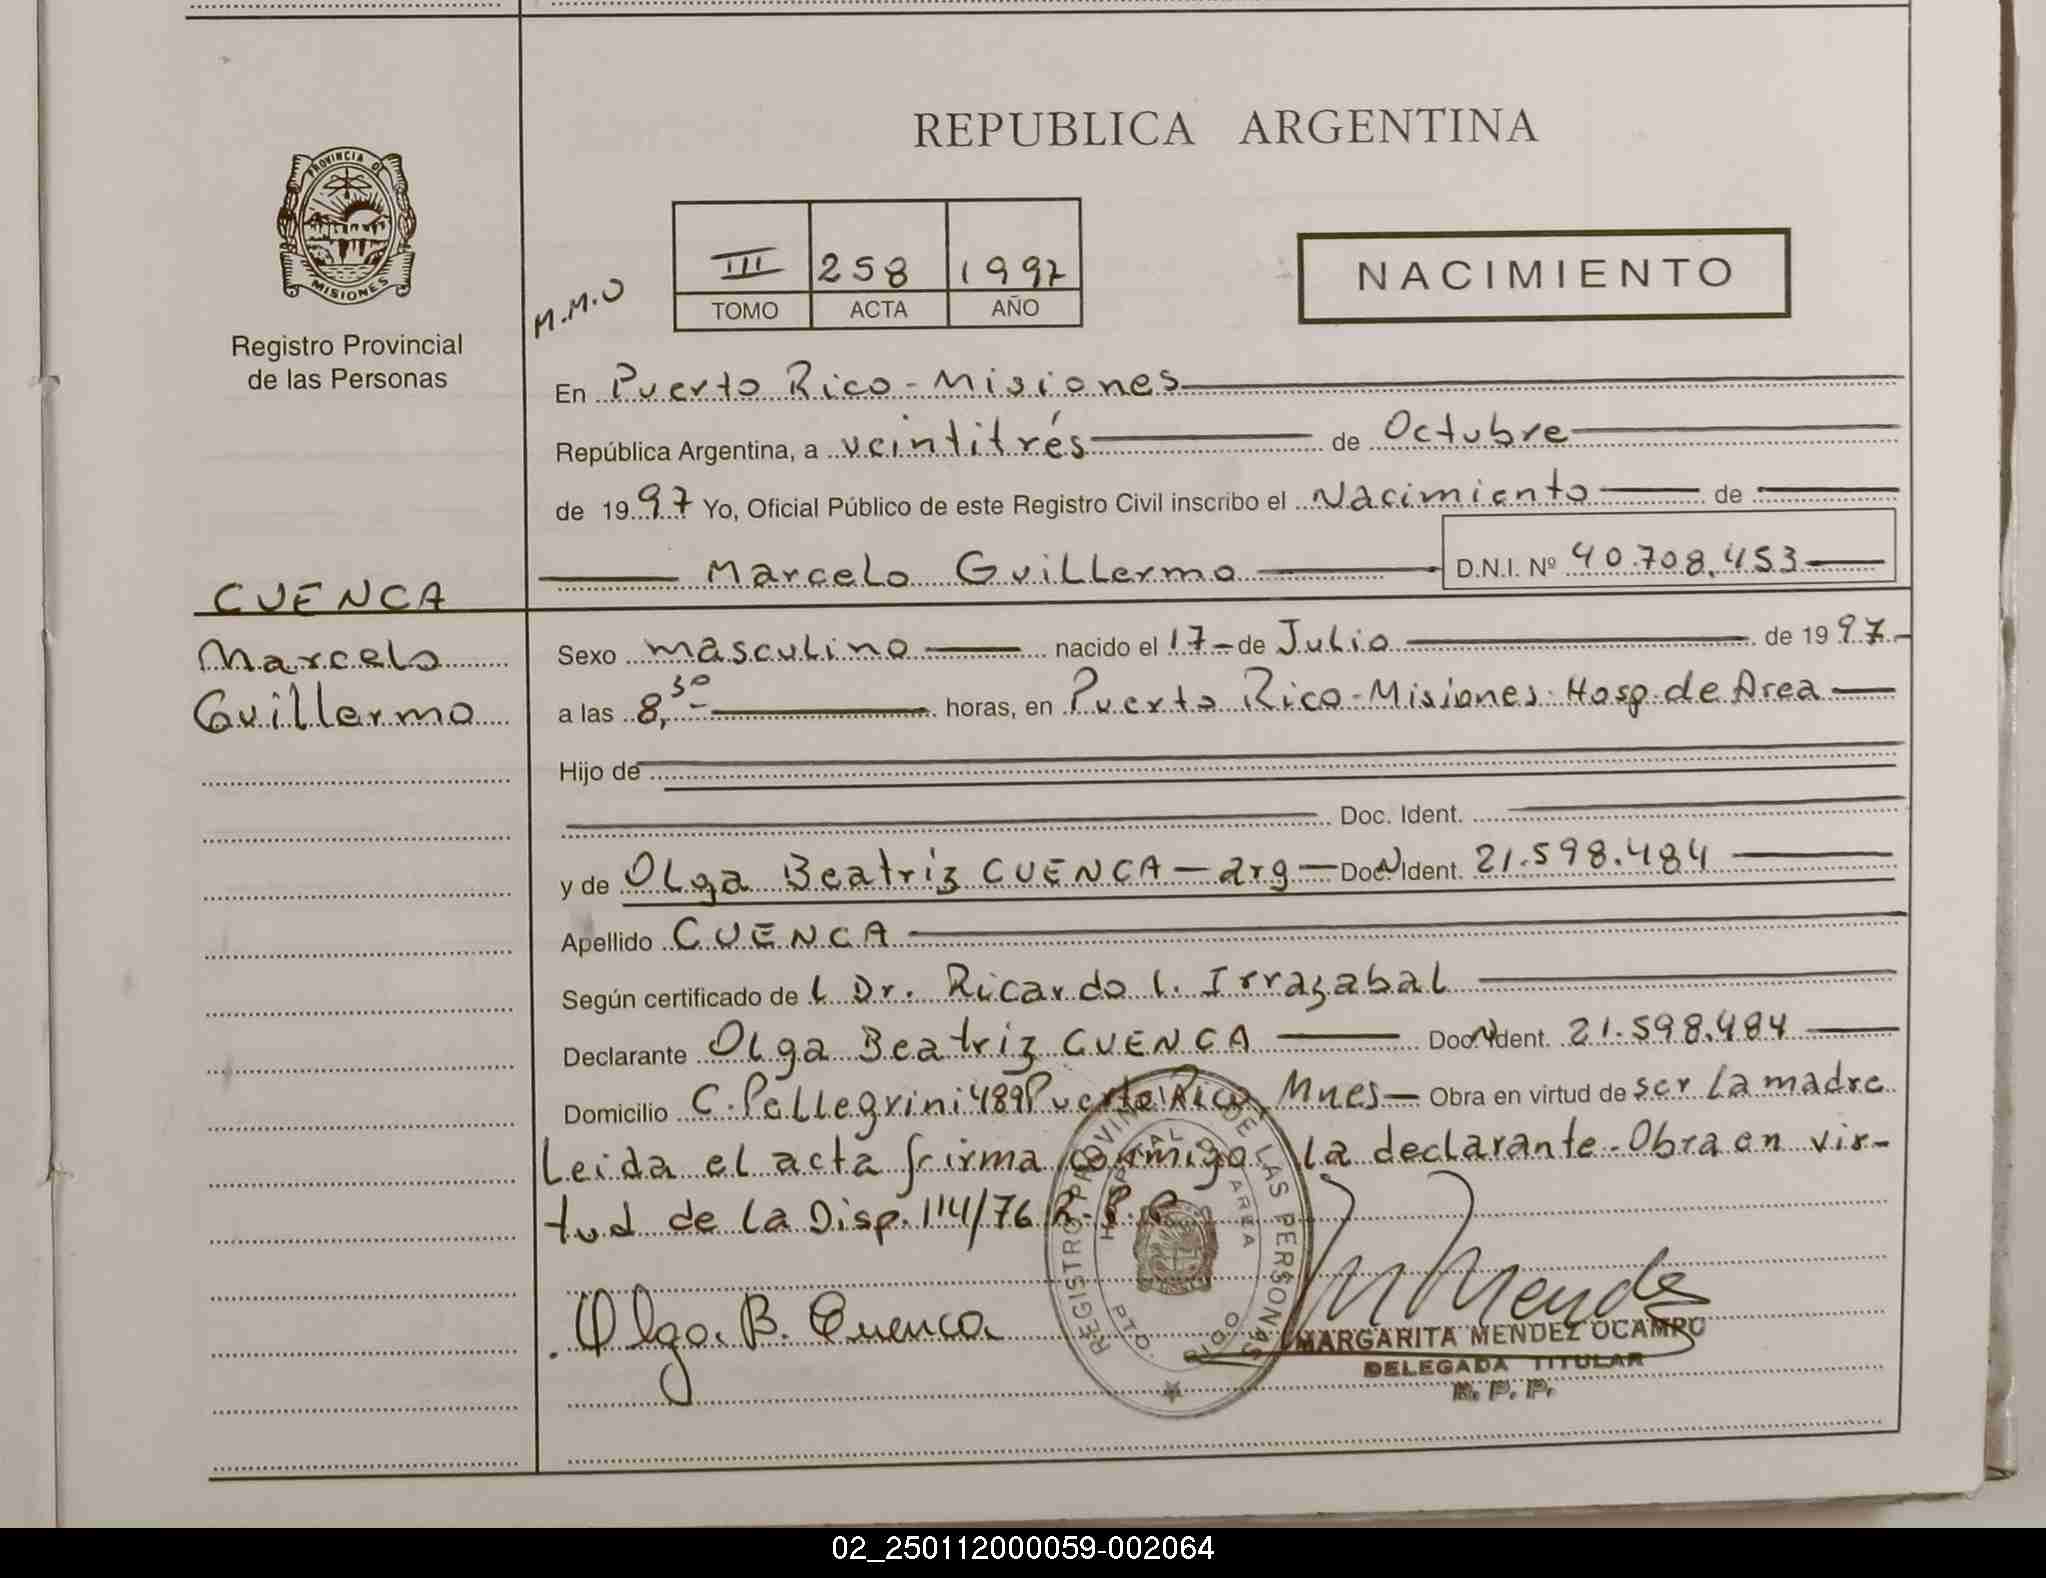 REPUBLICA ARGENTINA
PROVINCIA DE MISIONES
Registro Provincial
de las Personas
M.M.O
III 258 1997
TOMO ACTA AÑO
NACIMIENTO
En Puerto Rico - Misiones
República Argentina, a veintitrés de Octubre
de 1997 Yo, Oficial Público de este Registro Civil inscribo el Nacimiento de
Marcelo Guillermo D.N.I. Nº 40.708.453
CUENCA
Marcelo
Guillermo
Sexo masculino nacido el 17 - de Julio de 1997.-
a las 8,30- horas, en Puerto Rico - Misiones. Hosp. de Area
Hijo de
Doc. Ident.
y de Olga Beatriz CUENCA - arg - Doc. N Ident. 21.598.484
Apellido CUENCA
Según certificado de l Dr. Ricardo l. Irrazabal
Declarante Olga Beatriz CUENCA Doc. N Ident. 21.598.484
Domicilio C. Pellegrini 489 Puerto Rico, Mnes - Obra en virtud de ser la madre
Leida el acta firma conmigo la declarante - Obra en vir-
tud de la Disp. 114/76 R.P.P.
REGISTRO PROVINCIAL DE LAS PERSONAS
HOSPITAL AREA
PTO. RICO
Olga. B. Cuenca
M Mendez
MARGARITA MENDEZ OCAMPO
DELEGADA TITULAR
R. P. P.
02_250112000059-002064